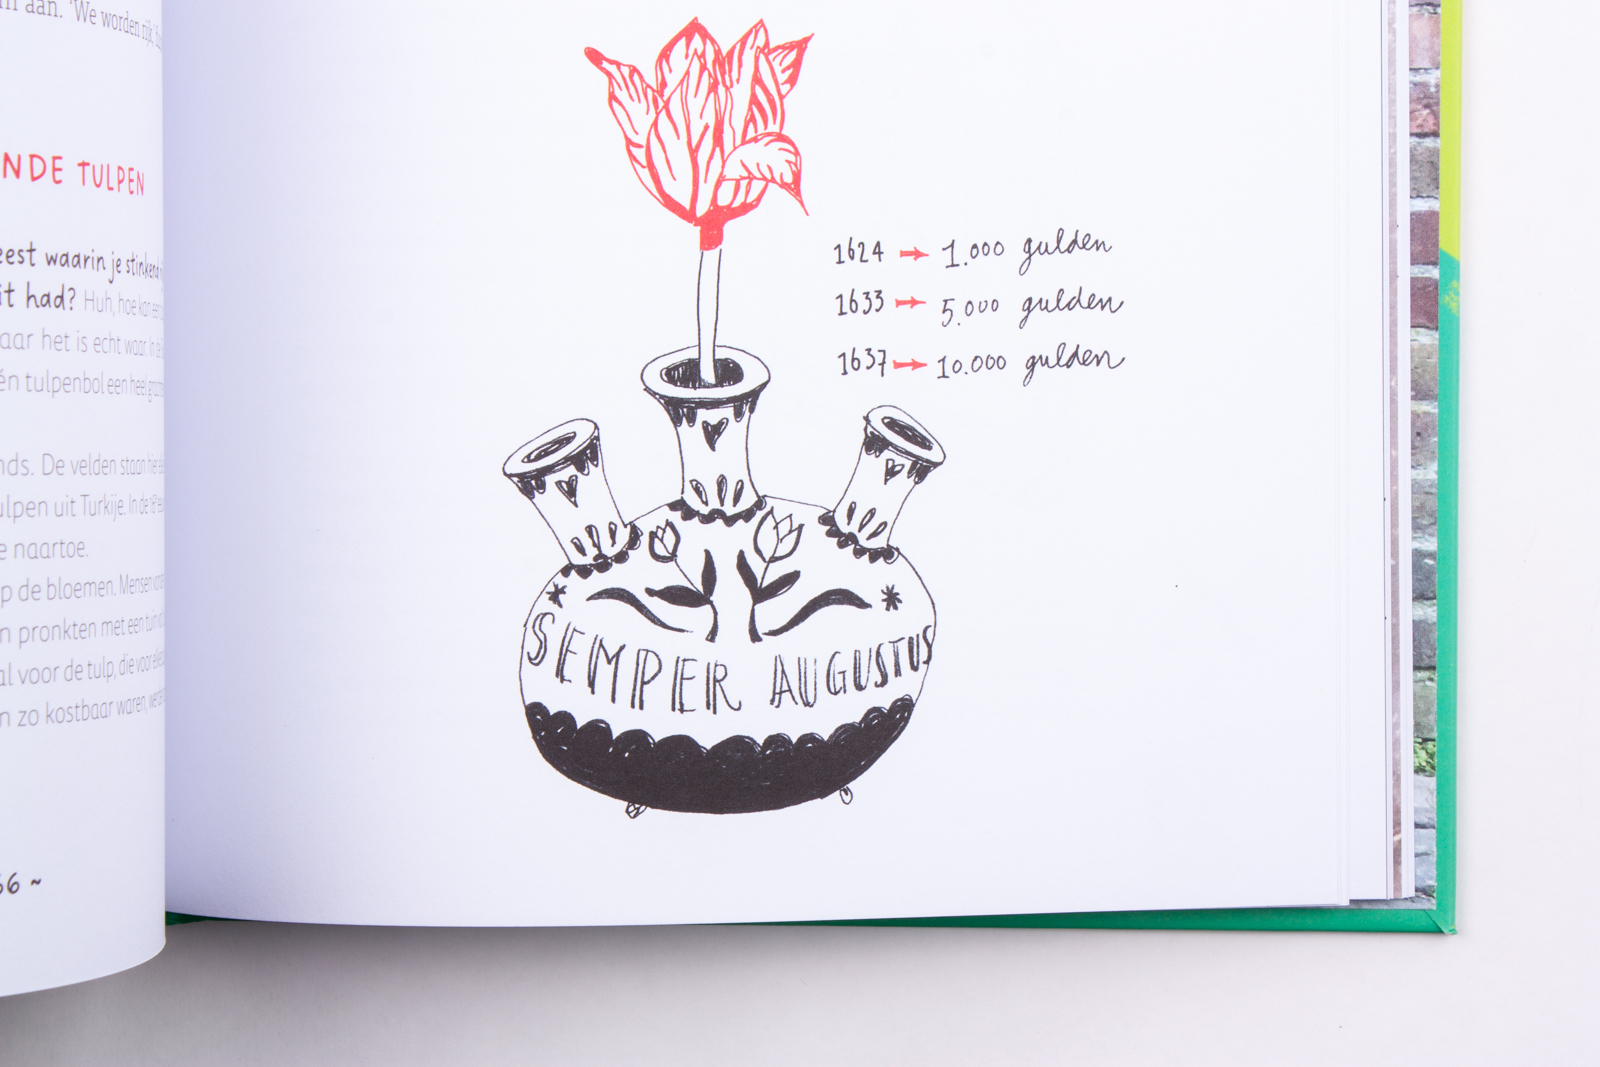 aan. 'We worden rijk,'
NDE TULPEN
eest waarin je stinkend
it had? Huh, hoe kan een
aar het is echt waar. In de
én tulpenbol een heel
nds. De velden staan hie
ulpen uit Turkije. In de 16e
e naartoe.
p de bloemen. Mensen
n pronkten met een tuin
al voor de tulp, die voor
n zo kostbaar waren,
66 ~
1624 → 1.000 gulden
1633 → 5.000 gulden
1637 → 10.000 gulden
SEMPER AUGUSTUS